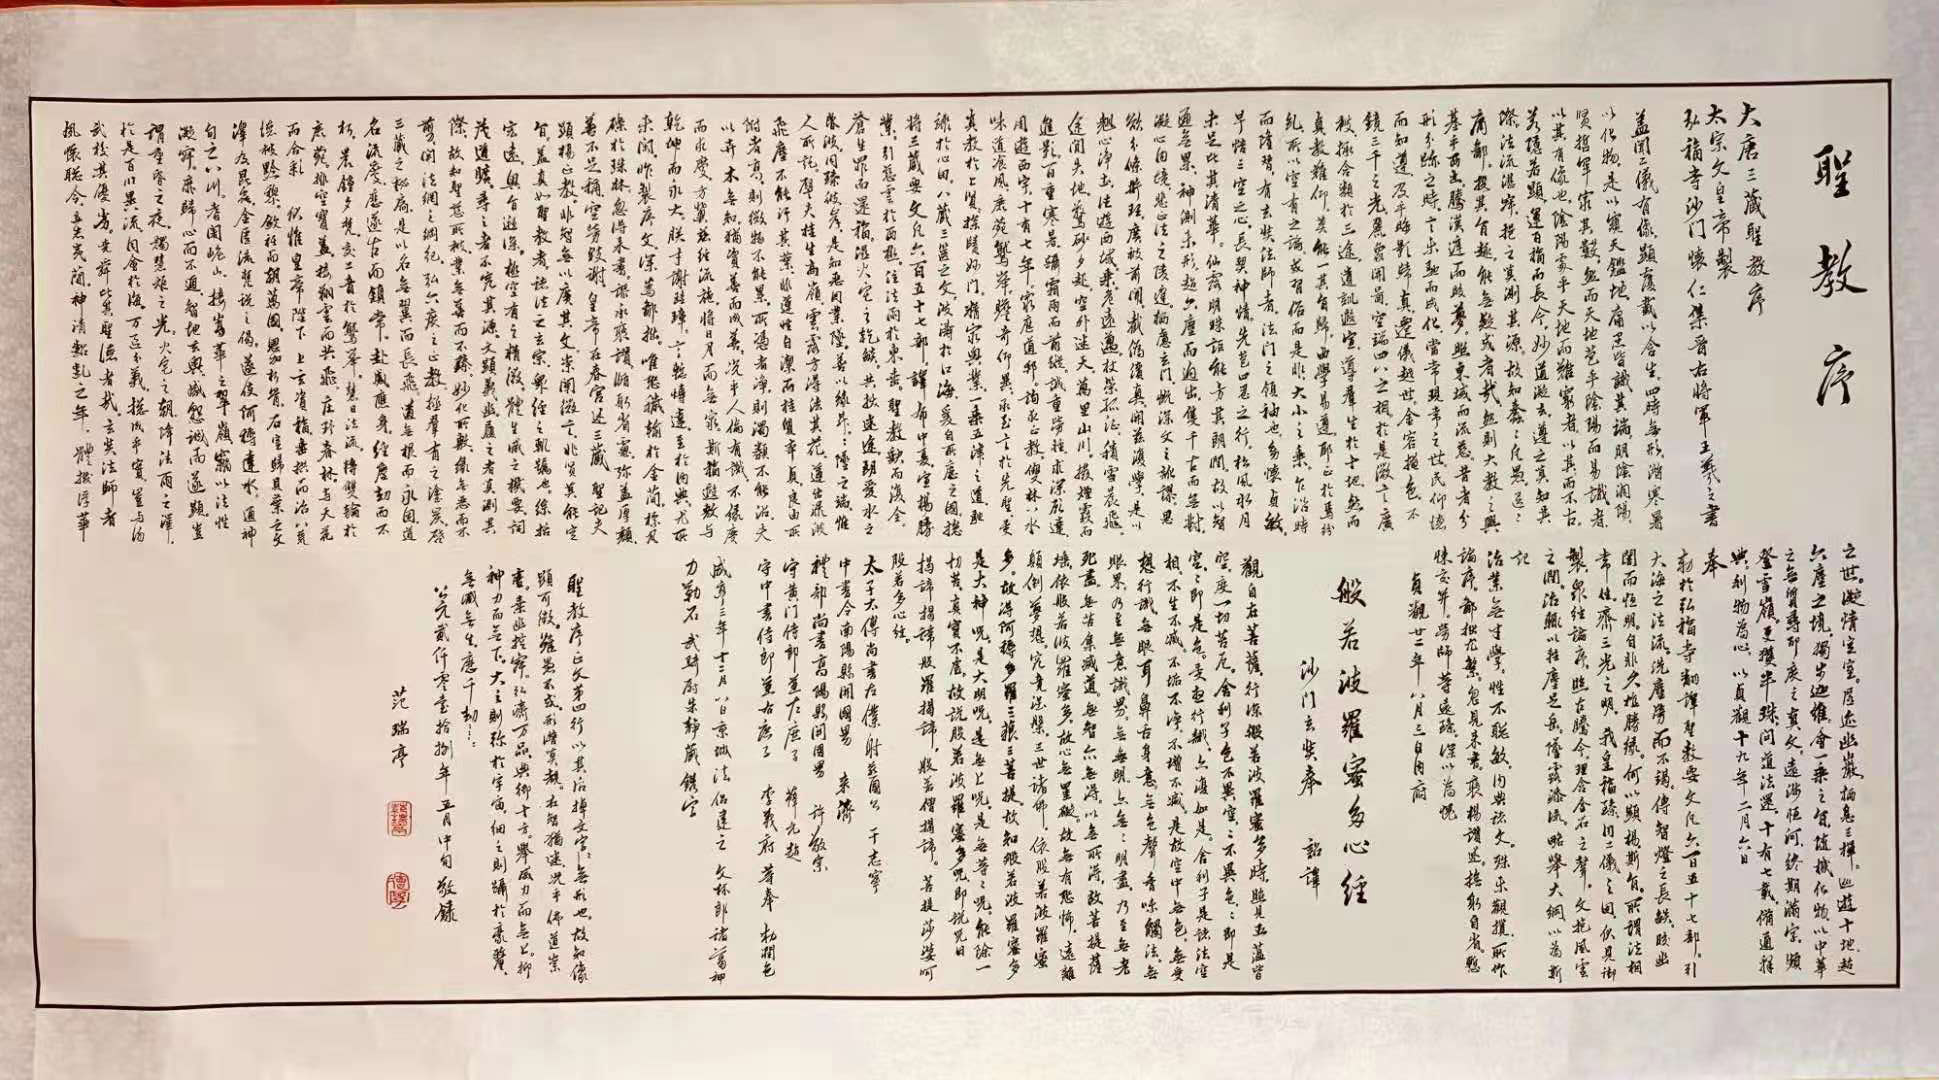 聖教序
大唐三藏聖教序
太宗文皇帝製
弘福寺沙門懷仁集晉右將軍王羲之書
蓋聞二儀有像顯覆載以含生四時無形潛寒暑
以化物是以窺天鑑地庸愚皆識其端明陰洞陽
賢哲罕窮其數然而天地苞乎陰陽而易識者
以其有像也陰陽處乎天地而難窮者以其而不古
若隱若顯運百福而長今妙道凝玄遵之莫知其
際法流湛寂挹之莫測其源故知蠢蠢凡愚區區
庸鄙投其旨趣能無疑或者哉然則大教之興
基乎西土騰漢庭而皎夢照東域而流慈昔者分
形分跡之時言未馳而成化當常現常之世民仰德
而知遵及乎晦影歸真遷儀越世金容掩色不
鏡三千之光麗象開圖空端四八之相於是微言廣
被拯含類於三途遺訓遐宣導群生於十地然而
真教難仰莫能一其旨歸曲學易遵邪正於焉紛
糺所以空有之論或習俗而是非大小之乘乍沿時
而隆替有玄奘法師者法門之領袖也幼懷貞敏
早悟三空之心長契神情先苞四忍之行松風水月
未足比其清華仙露明珠詎能方其朗潤故以智
通無累神測未形超六塵而迥出隻千古而無對
凝心內境悲正法之陵遲栖慮玄門慨深文之訛謬思
欲分條析理廣彼前聞截偽續真開茲後學是以
翹心淨土法遊西域乘危遠邁杖策孤征積雪晨飛
途間失地驚砂夕起空外迷天萬里山川撥煙霞而
進影百重寒暑躡霜雨而前蹤誠重勞輕求深願達
周遊西宇十有七年窮歷道邦詢求正教雙林八水
味道餐風鹿苑鷲峯瞻奇仰異承至言於先聖受
真教於上賢探賾妙門精窮奧業一乘五律之道馳
驟於心田八藏三篋之文波濤於口海爰自所歷之國揔
將三藏要文凡六百五十七部譯布中夏宣揚勝
業引慈雲於西極注法雨於東垂聖教缺而復全
蒼生罪而還福濕火宅之乾燄共拔迷途朗愛水之
昬波同臻彼岸是知惡因業墜善以緣昇昇墜之端惟
人所託譬夫桂生高嶺雲露方得泫其花蓮出淥波
飛塵不能汙其葉非蓮性自潔而桂質本貞良由所
附者高則微物不能累所憑者淨則濁類不能沾夫
以卉木無知猶資善而成善況乎人倫有識不緣慶
而求慶方冀茲經流施將日月而無窮斯福遐敷與
乾坤而永大朕才謝珪璋言慙博達至於內典尤所
未閑昨製序文深為鄙拙唯恐穢翰於金簡標瓦
礫於珠林忽得來書謬承褒讚循躬省慮弥益厚顏
善不足稱空勞致謝皇帝在春宮述三藏聖記夫
顯揚正教非智無以廣其文崇闡微言非賢莫能定
其旨蓋真如聖教者諸法之玄宗眾經之軌躅也綜括
宏遠奧旨遐深極空有之精微體生滅之機要詞
茂道曠尋之者不究其源文顯義幽履之者莫測其
際故知聖慈所被業無善而不臻妙化所敷緣無惡而不
翦開法網之綱紀弘六度之正教拯群有之塗炭啓
三藏之秘扃是以名無翼而長飛道無根而永固道
名流慶歷遂古而鎮常赴感應身經塵劫而不
朽晨鐘夕梵交二音於鷲峯慧日法流轉雙輪於
鹿苑排空寶蓋接翔雲而共飛莊野春林與天花
而合彩伏惟皇帝陛下上玄資福垂拱而治八荒
德被黔黎斂衽而朝萬國恩加朽骨石室歸貝葉之文
澤及昆蟲金匱流梵說之偈遂使阿耨達水通神
甸之八川耆闍崛山接嵩華之翠嶺竊以法性
凝寂靡歸心而不通智地玄奧感懇誠而遂顯豈
謂重昏之夜燭慧炬之光火宅之朝降法雨之澤
於是百川異流同會於海萬區分義揔成乎實豈與湯
武校其優劣堯舜比其聖德者哉玄奘法師者
夙懷聡令立志夷簡神清齠齔之年體拔浮華
之世凝情定室匿迹幽巖栖息三禪巡遊十地超
六塵之境獨步迦維會一乘之旨隨機化物以中華
之無質尋印度之真文遠涉恒河終期滿字頻
登雪嶺更獲半珠問道法還十有七載備通釋
典利物為心以貞觀十九年二月六日
奉
勅於弘福寺翻譯聖教要文凡六百五十七部引
大海之法流洗塵勞而不竭傳智燈之長燄皎幽
闇而恒明自非久植勝緣何以顯揚斯旨所謂法相
常住齊三光之明我皇福臻同二儀之固伏見御
製眾經論序照古騰今理含金石之聲文抱風雲
之潤治輒以輕塵足岳墜露添流略舉大綱以為斯
記
治素無才學性不聡敏內典諸文殊未觀攬所作
論序鄙拙尤繁忽見來書褒揚讚述撫躬自省慙
悚交并勞師等遠臻深以為愧
貞觀廿二年八月三日內府
般若波羅蜜多心經
沙門玄奘奉 詔譯
觀自在菩薩行深般若波羅蜜多時照見五蘊皆
空度一切苦厄舍利子色不異空空不異色色即是
空空即是色受想行識亦復如是舍利子是諸法空
相不生不滅不垢不淨不增不減是故空中無色無受
想行識無眼耳鼻舌身意無色聲香味觸法無
眼界乃至無意識界無無明亦無無明盡乃至無老
死盡無苦集滅道無智亦無得以無所得故菩提薩
埵依般若波羅蜜多故心無罣礙故無有恐怖遠離
顛倒夢想究竟涅槃三世諸佛依般若波羅蜜
多故得阿耨多羅三藐三菩提故知般若波羅蜜多
是大神咒是大明咒是無上咒是無等等咒能除一
切苦真實不虛故說般若波羅蜜多咒即說咒曰
揭諦揭諦般羅揭諦般若僧揭諦菩提莎婆呵
般若多心經
太子太傅尚書左僕射燕國公 于志寧
中書令南陽縣開國男 來濟
禮部尚書高陽縣開國男 許敬宗
守黃門侍郎兼左庶子 薛元超
守中書侍郎兼右庶子 李義府等奉 勅潤色
咸亨三年十二月八日京城法侶建立 文林郎諸葛神
力勒石 武騎尉朱靜藏鐫字
聖教序正文第四行以其后掉文字無形也故知像
顯可徵雖愚不或形潛莫覩在智猶迷況乎佛道崇
虛乘幽控寂弘濟万品典御十方舉威力而無上抑
神力而無下大之則弥於宇宙細之則攝於豪釐
無滅無生歷千劫
公元貳仟零壹拾捌年五月中旬敬錄
范瑞亭